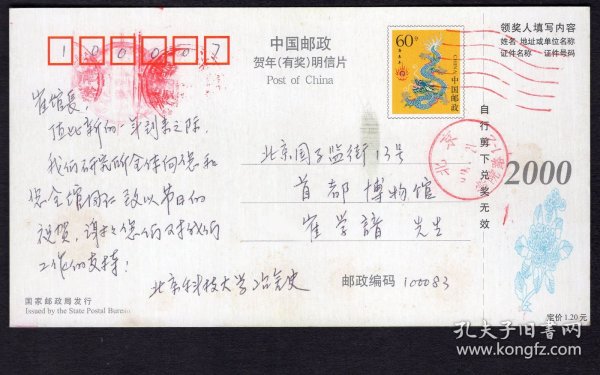 100007
中国邮政
贺年(有奖)明信片
Post of China
60分
中国邮政
CHINA
领奖人填写内容
姓名 地址或单位名称
证件名称 证件号码
崔馆长:
值此新的一年到来之际,
我们研究所全体向您和
您全馆同仁致以节日的
祝贺,谢谢您们对我们
工作的支持!
北京国子监街13号
首都博物馆
崔学谙 先生
北京科技大学冶金史
邮政编码 100083
北京
自行剪下兑奖无效
2000
国家邮政局发行
Issued by the State Postal Bureau
定价:1.20元
孔夫子旧书网
www.kongfz.com